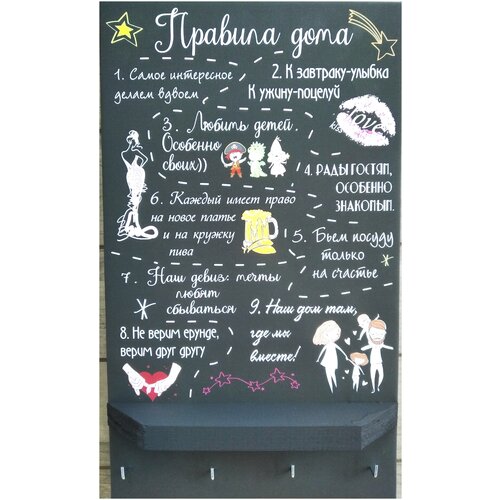 Правила дома
1. Самое интересное
делаем вдвоем
2. К завтраку-улыбка
К ужину-поцелуй
3. Любить детей.
Особенно
своих))
love
4. РАДЫ ГОСТЯМ,
ОСОБЕННО
ЗНАКОМЫМ.
6. Каждый имеет право
на новое платье
и на кружку
пива
5. Бьем посуду
только
на счастье
7. Наш девиз: мечты
любят
сбываться
8. Не верим ерунде,
верим друг другу
9. Наш дом там,
где мы
вместе!